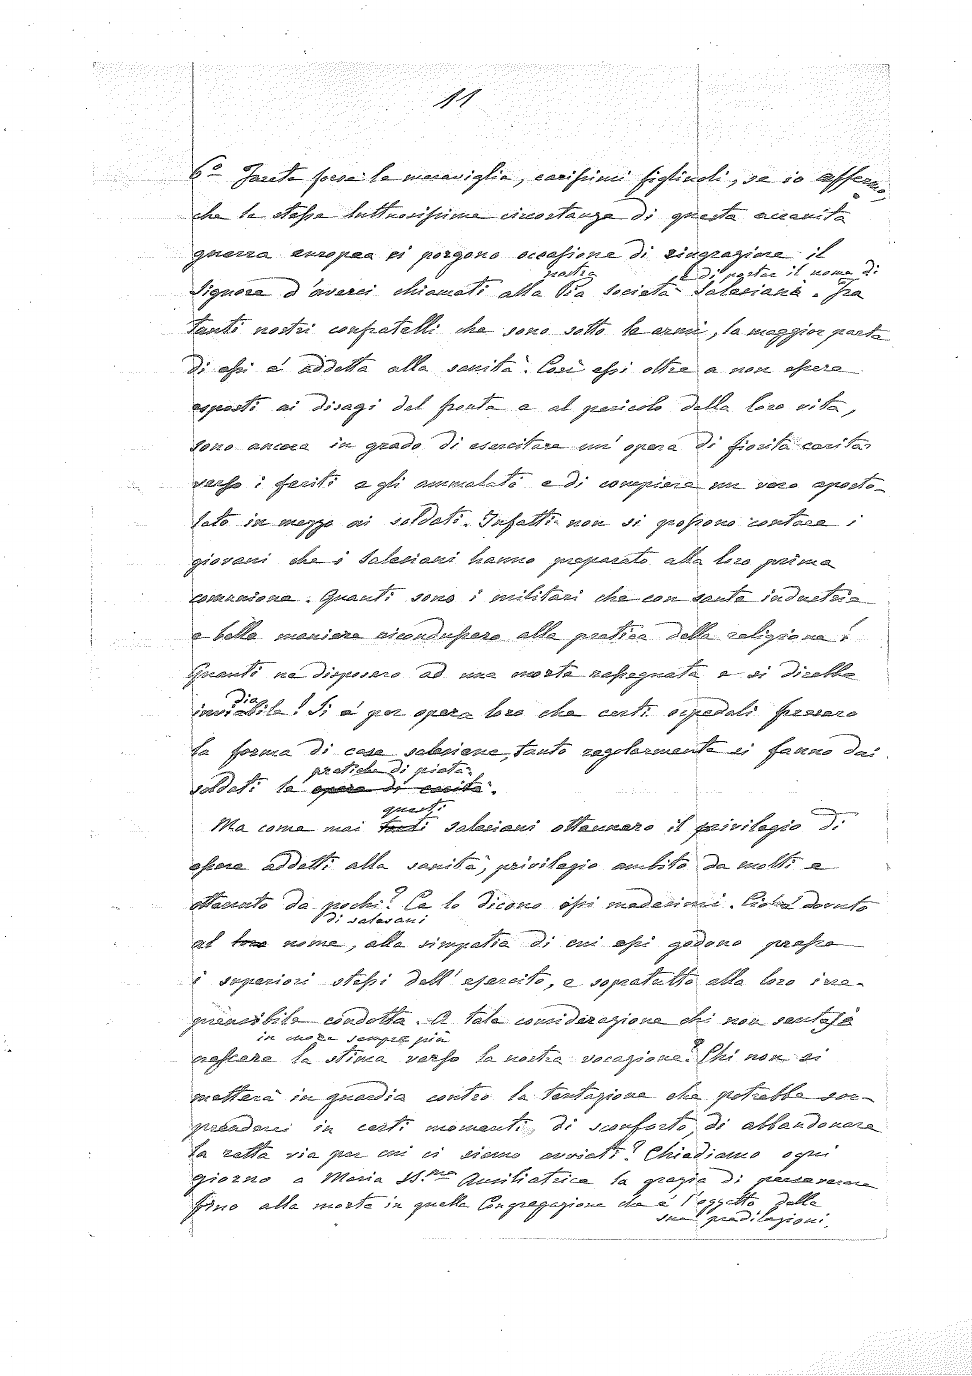 11
6º Farete forse le meraviglie, carissimi figliuoli, se io affermo,
che le stesse luttuosissime circostanze di questa accanita
guerra europea ci porgono occasione di ringraziare il
nostra e di portar il nome di
Signore d'averci chiamati alla Pia società Salesiana. Fra
tanti nostri confratelli che sono sotto le armi, la maggior parte
di essi è addetta alla sanità. Così essi oltre a non essere
esposti ai disagi del fronte e al pericolo della loro vita,
sono ancora in grado di esercitare un'opera di fiorita carità
verso i feriti e gli ammalati e di compiere un vero aposto-
lato in mezzo ai soldati. Infatti non si possono contare i
giovani che i Salesiani hanno preparato alla loro prima
comunione. Quanti sono i militari che con santa industria
e belle maniere ricondussero alla pratica della religione!
Quanti ne disposero ad una morte rassegnata e si direbbe
dia
inviabile! Si è per opera loro che certi ospedali presero
la forma di case salesiane, tanto regolarmente si fanno dai
pratiche di pietà
soldati le opere di carità.
questi
Ma come mai tanti salesiani ottennero il privilegio di
essere addetti alla sanità, privilegio ambito da molti e
ottenuto da pochi? Ce lo dicono essi medesimi. Ciò è dovuto
di salesiani
al loro nome, alla simpatia di cui essi godono presso
i superiori stessi dell'esercito, e sopratutto alla loro irre-
prensibile condotta. A tale considerazione chi non sentesi
in more sempre più
nascere la stima verso la nostra vocazione? Chi non si
metterà in guardia contro la tentazione che potrebbe sor-
prenderci in certi momenti, di sconforto, di abbandonare
la retta via per cui ci siamo avviati? Chiediamo ogni
giorno a Maria SS.ma Ausiliatrice la grazia di perseverare
fino alla morte in quella Congregazione che è l'oggetto delle
sue predilezioni.